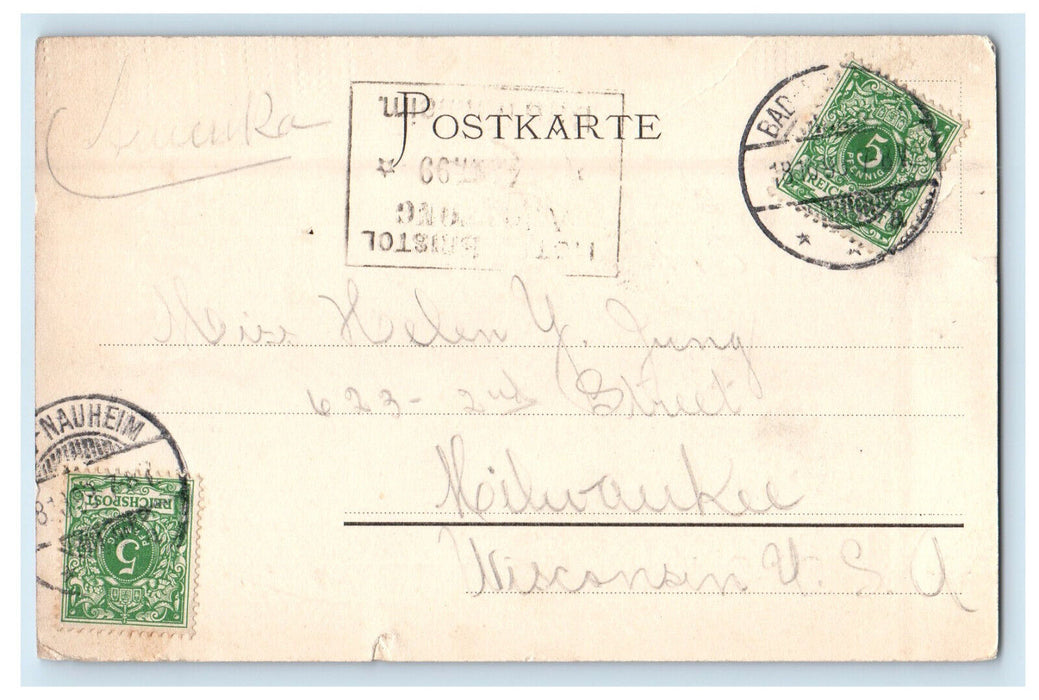 POSTKARTE
BAD
5
PFENNIG
REICH
Miss Helen Y. Jung
623- 2nd Street
Milwaukee
Wisconsin U. S. A
NAUHEIM
REICHSPOST
PFENNIG
5
BRISTOL